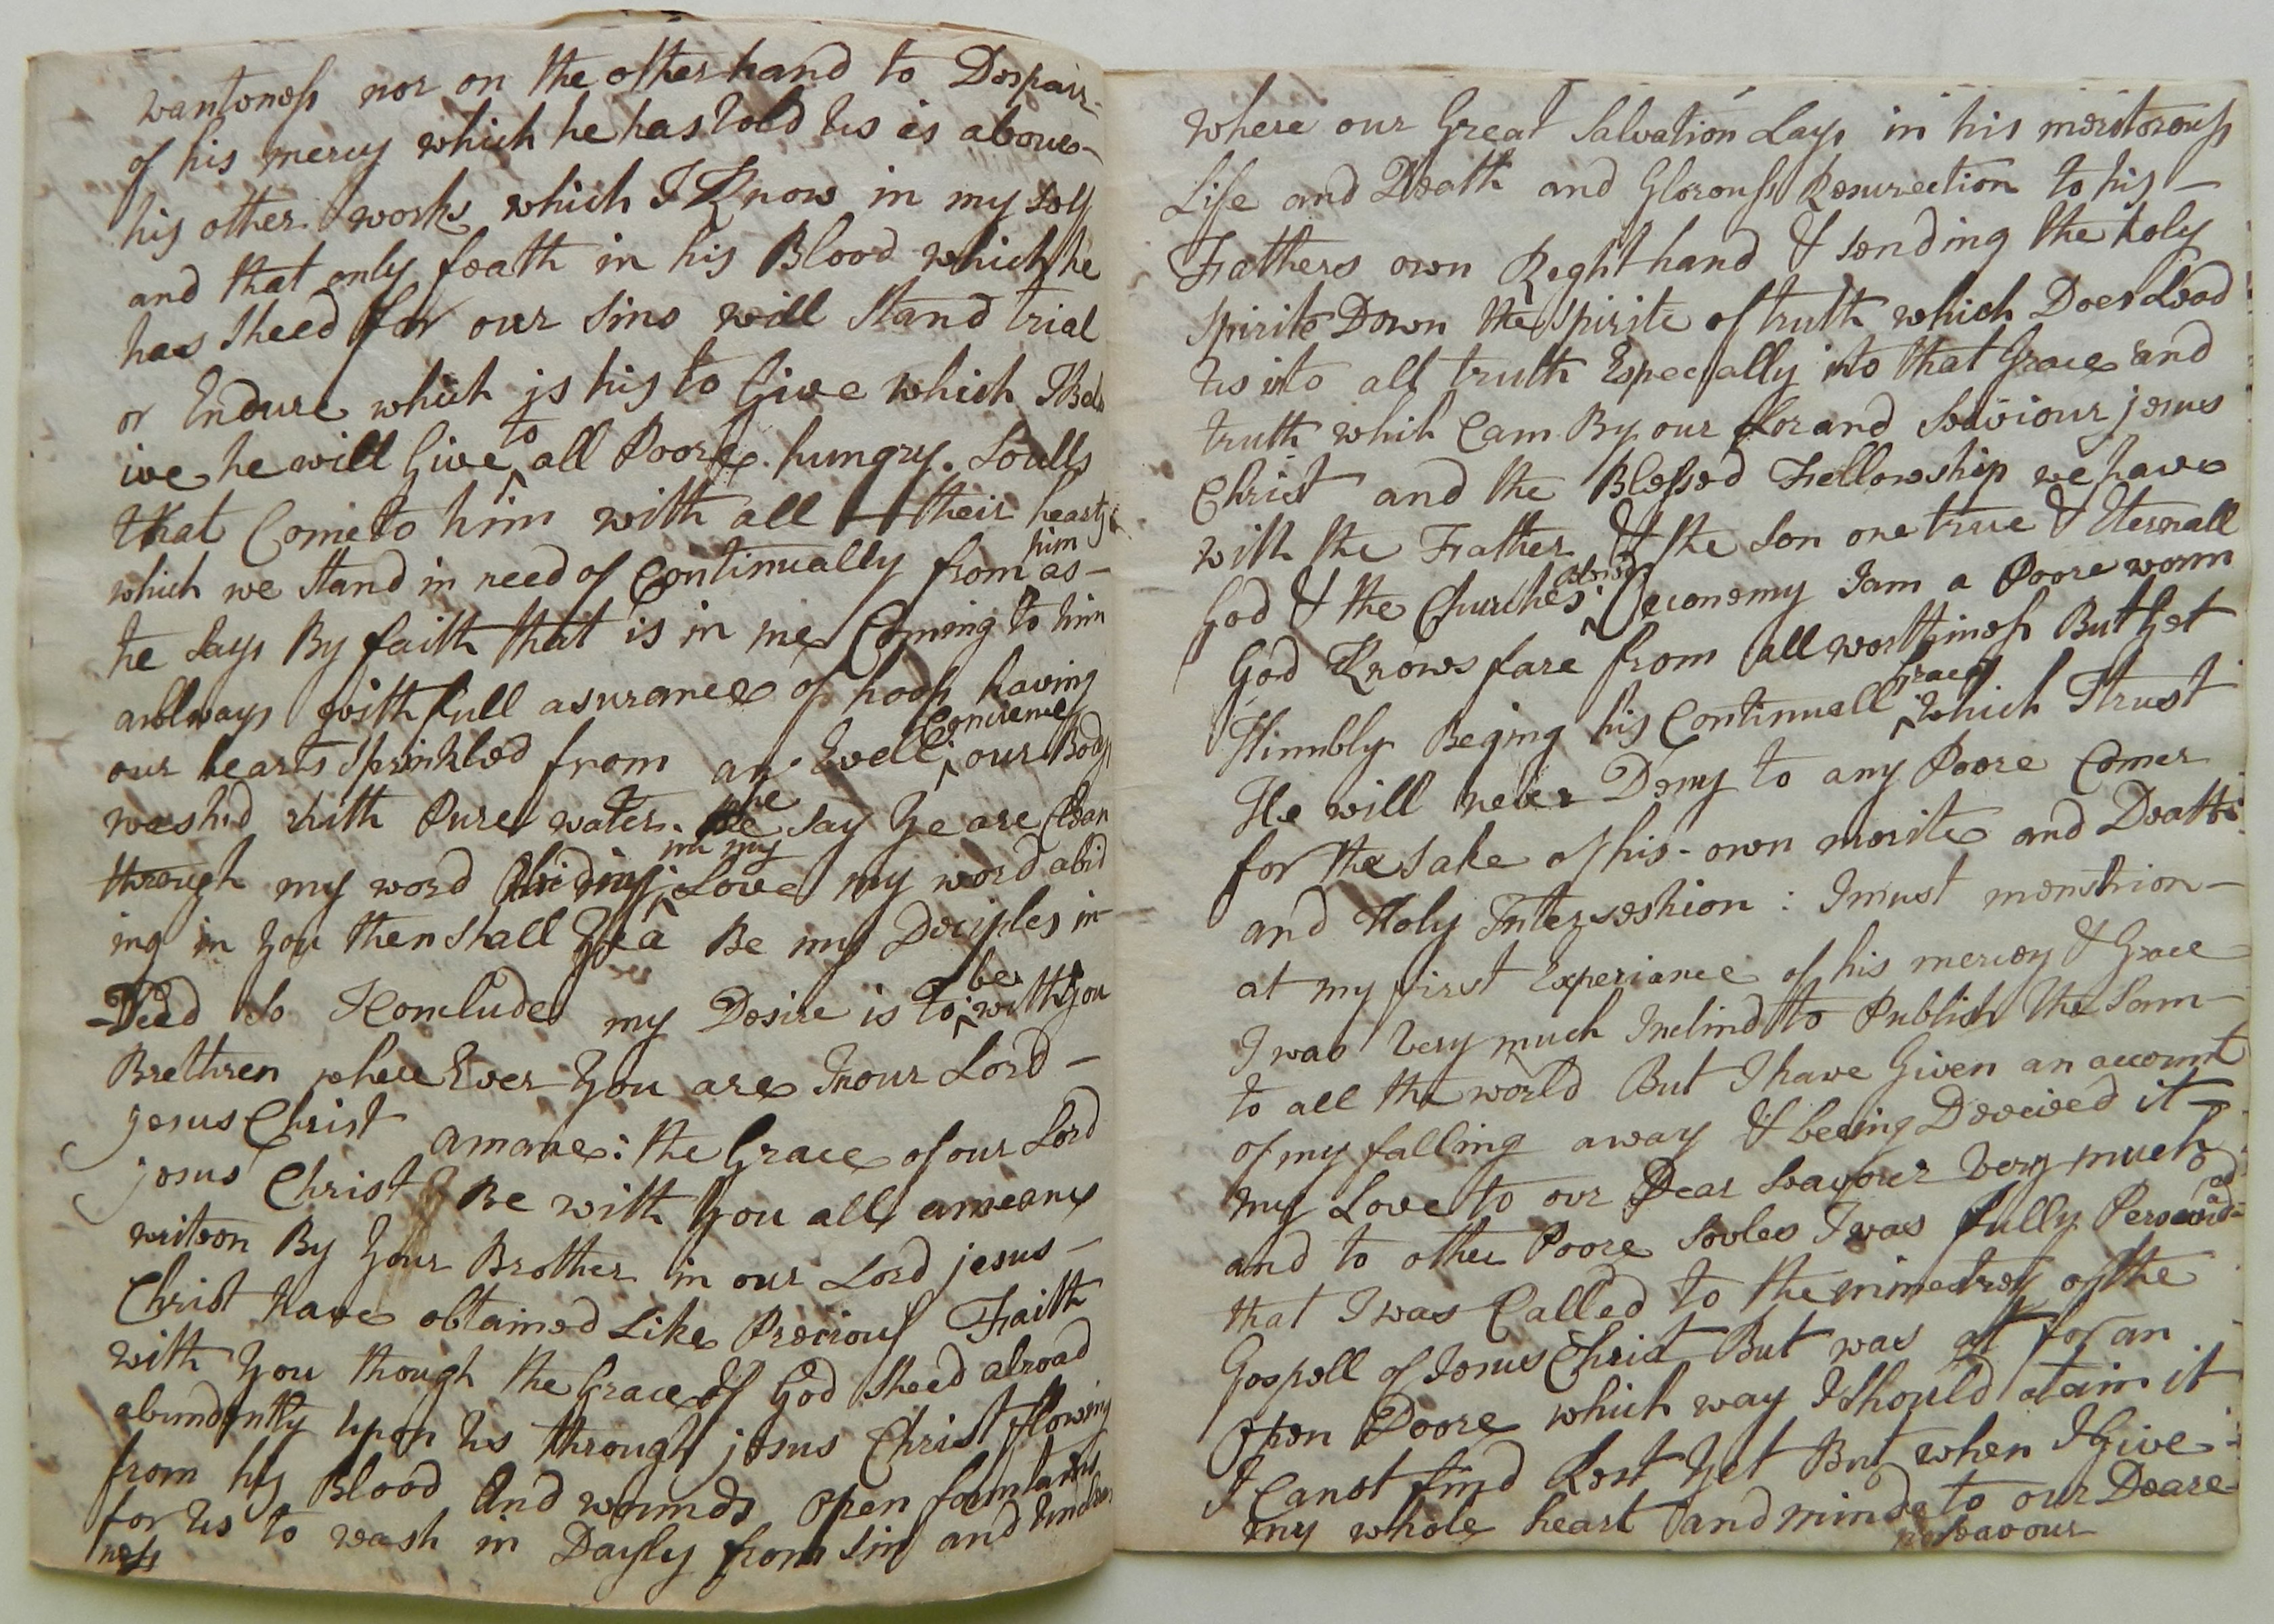 wantoness nor on the other hand to Despair-
of his mercy which he has told us is above-
his other works which I Know in my self
and that only feath in his Blood which he
has sheed for our sins will stand trial
or Endure which is his to Give which I Bele
ive he will Give to all Poore hungry Soulls
that Come to him with all their hearts
which we stand in need of Continually from him as-
he says By faith that is in me Coming to him
allways with full asurance of hoop having
our hearts Sprinkled from an Evell Concience our Body
washd with Pure water he say Ye are Clean
through my word Abiding in my Love my word abid
ing in you then shall Ye Be my Deciples in-
Deed So I Conclude my Desire is to be with you
Brethren where Ever you are In our Lord-
jesus Christ amane: the Grace of our Lord
jesus Christ Be with you all ameane
writeon By your Brother in our Lord jesus-
Christ have obtained Like Precious Faith
with you though the Grace of God sheed abroad
abundantly upon us through jesus Christ flowing
from his Blood And wounds open fountains
for us to wash in Dayly from Sin and Unclean
ness
where our Great Salvation Lays in his meritorouss
Life and Death and Glorouss Resurection to his-
Fathers own Reght hand & sending the holy
spirite Down the spirite of truth which Does Lead
us into all truth Especially into that Grace and
truth whih Cam By our Lor and Saiviour jesus
Christ and the Blessed Fellowship we have
with the Father & the Son one true & Eternall
God & the Churches Oeconemy I am a Poore worm
God Knows fare from all worthiness But Yet
Humbly Beging his Continuall Grace which I trust
He will never Deny to any Poore Comer
for the sake of his-own merite and Death
and Holy Interseshion: I must menshion-
at my first Experiance of his mercy & Grace
I was very much Inclind to Publish the Sam-
to all the world But I have Given an account
of my falling away & being Deceived it-
my Love to our Dear Seavour very much
and to other Poore Soules I was fully Perswad-ed
that I was Called to the minestrey of the
Gospell of Jesus Christ But was at for an
open Doore which way I should atain it
I Canot find Rest Yet But when I Give-
my whole heart and minde to our Deare-
Seavour